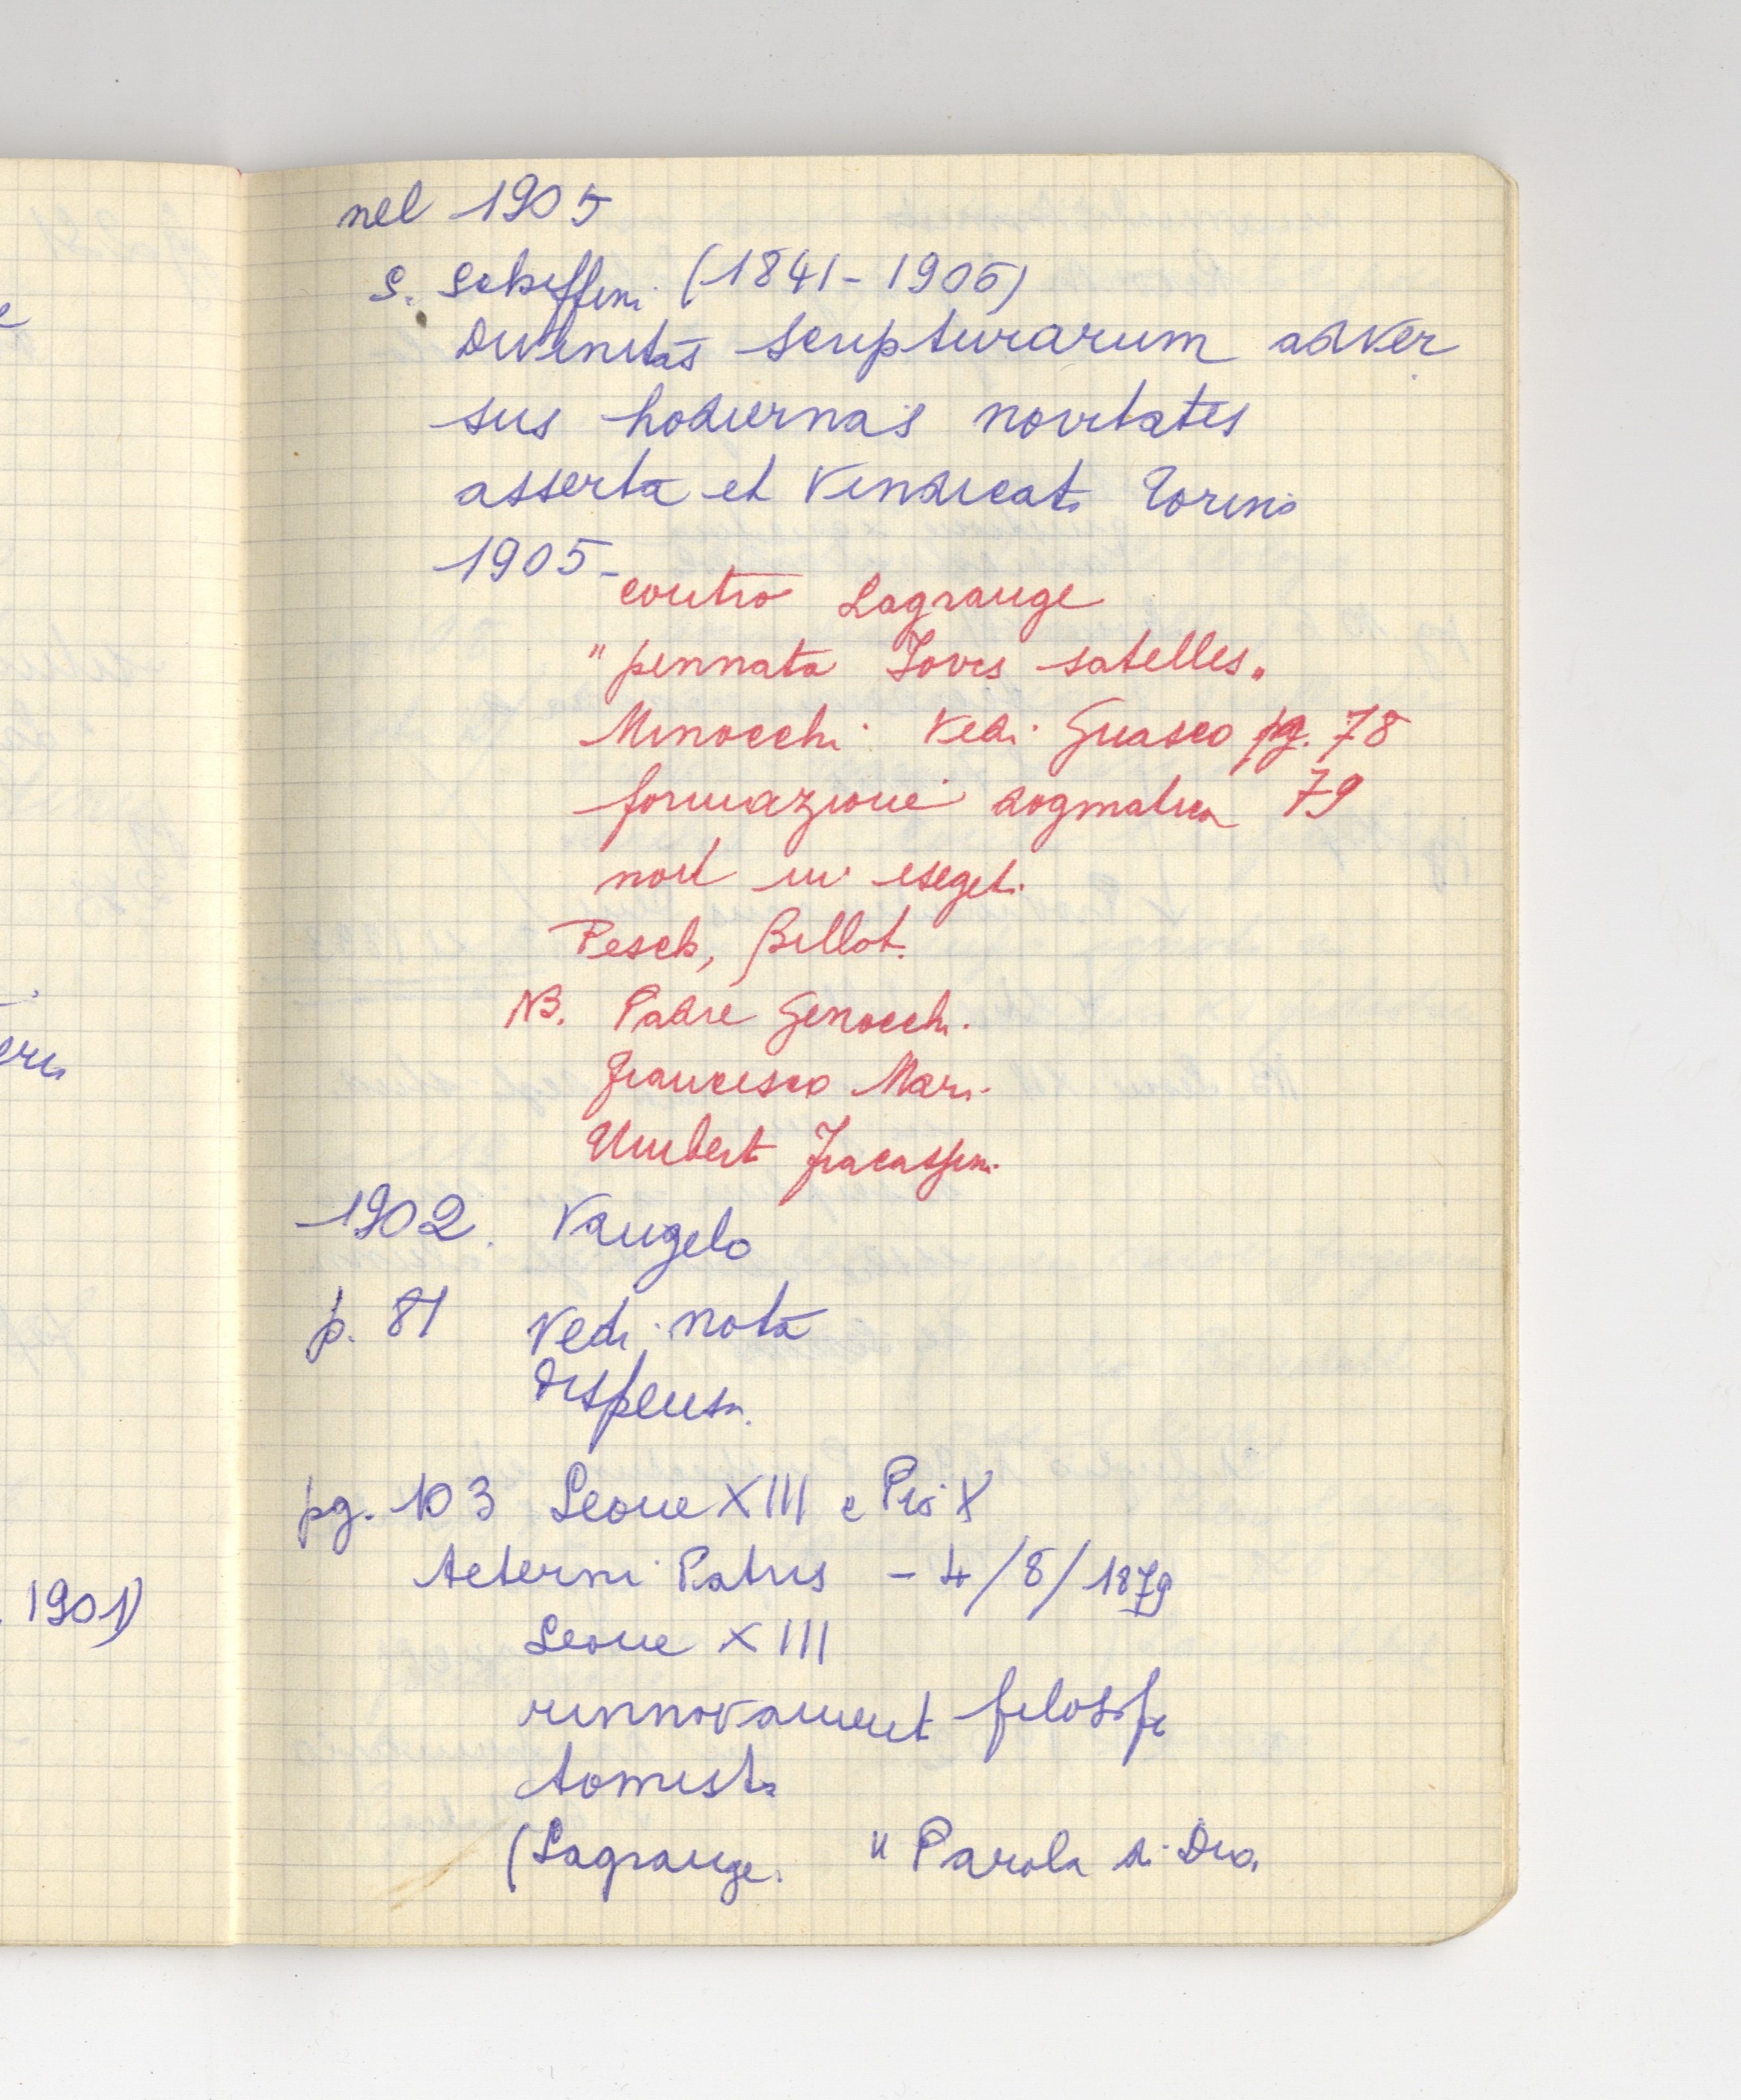 nel 1905
S. Schiffini (1841-1906)
Divinitas Scripturarum adver
sus hodiernas novitates
asserta et vindicata Torino
1905-
contro Lagrange
"pennata Iovis satelles"
Minocchi Vedi Guasco pg. 78
formazione dogmatica 79
non di esegeti
Pesch, Billot.
NB. Padre Genocchi
Francesco Mari
Umberto Fracassini
1902. Vangelo
p. 81 Vedi nota
Dispensa
pg. 103 Leone XIII e Pio X
Aeterni Patris - 4/8/1879
Leone XIII
rinnovament filosofi
tomista
(Lagrange. "Parola di Dio
1901)